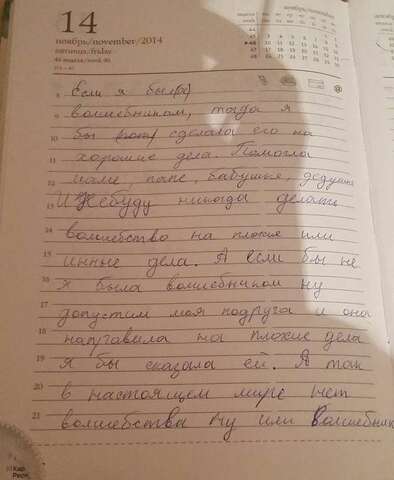 14
ноябрь/november/2014
пятница/friday
46 неделя/week 46
8 Если я был(а)
9 волшебником, тогда я
10 бы сделала его на
11 хорошие дела. Помогла
12 маме, папе, бабушке, дедушке
13 И Небуду никогда делать
14 волшебство на плохие или
15 инные дела. А если бы не
16 я была волшебником ну
17 допустим моя подруга и она
18 направила на плохие дела
19 я бы сказала ей. А так
20 в настоящем мире нет
21 волшебства ну или Волшебник